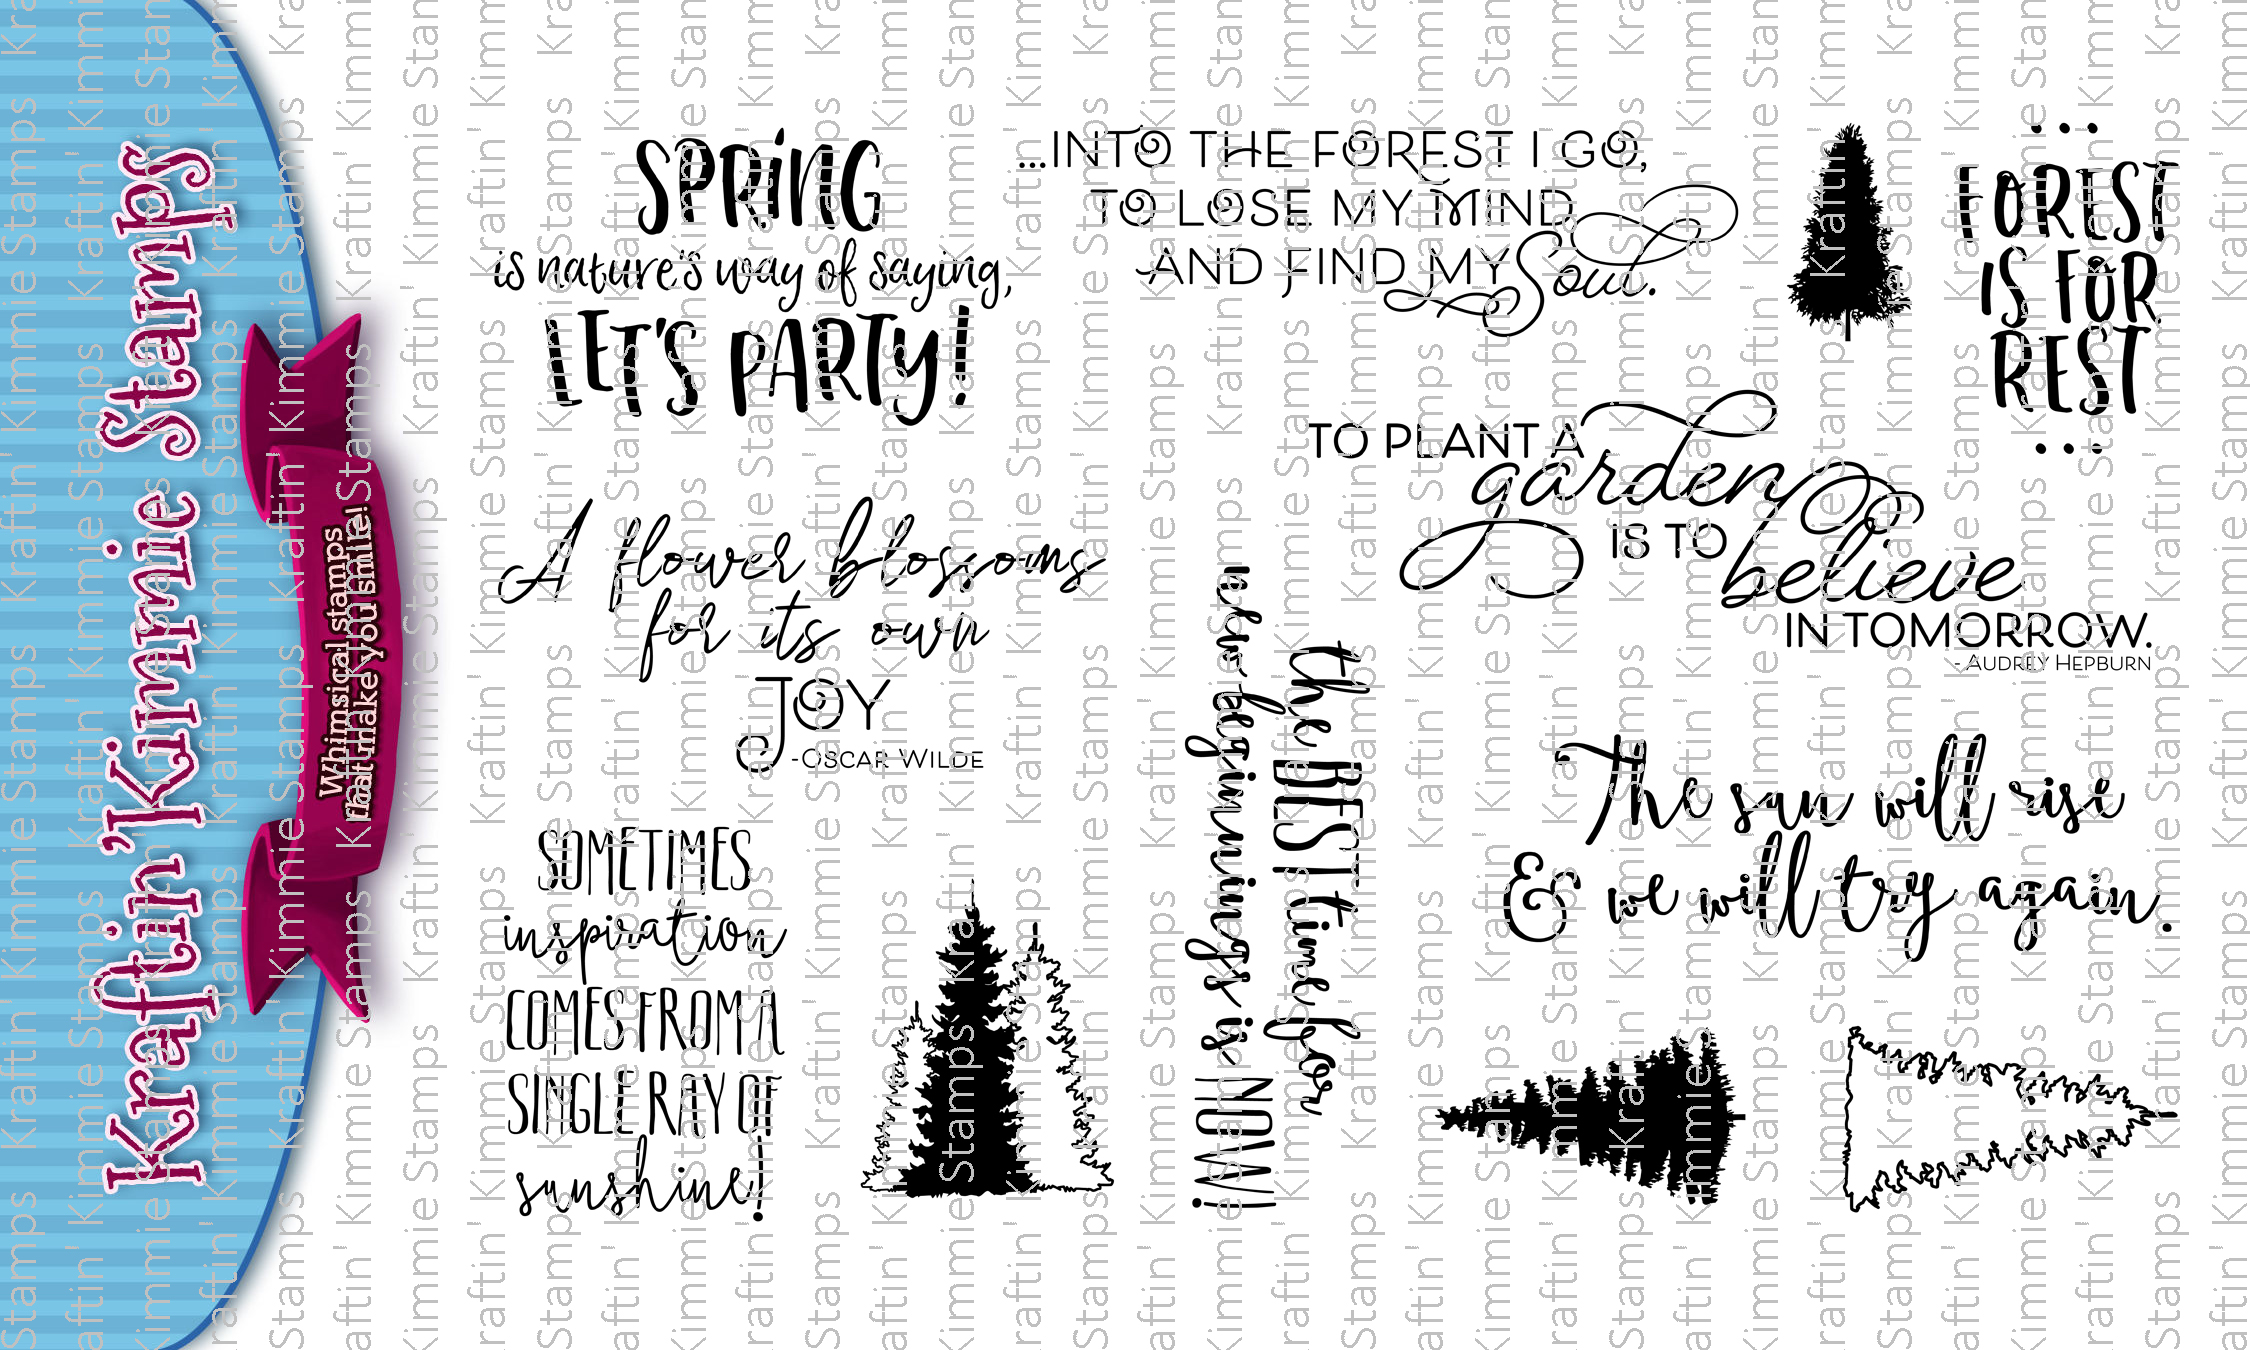 Kraftin' Kimmie Stamps
Whimsical stamps
that make you smile!
SPRING
is nature's way of saying,
LET'S PARTY!
...INTO THE FOREST I GO,
TO LOSE MY MIND
AND FIND MY Soul.
...
FOREST
IS FOR
REST
...
TO PLANT A
garden
IS TO
believe
IN TOMORROW.
- AUDREY HEPBURN
A flower blossoms
for its own
JOY
-OSCAR WILDE
the BEST time for
new beginnings is NOW!
The sun will rise
& we will try again.
SOMETIMES
inspiration
COMES FROM A
SINGLE RAY OF
sunshine!